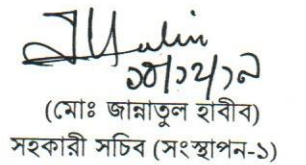 (মোঃ জান্নাতুল হাবীব)
সহকারী সচিব (সংস্থাপন-১)